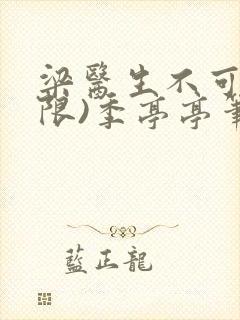 梁醫生不可
限)季亭亭筆
藍正龍